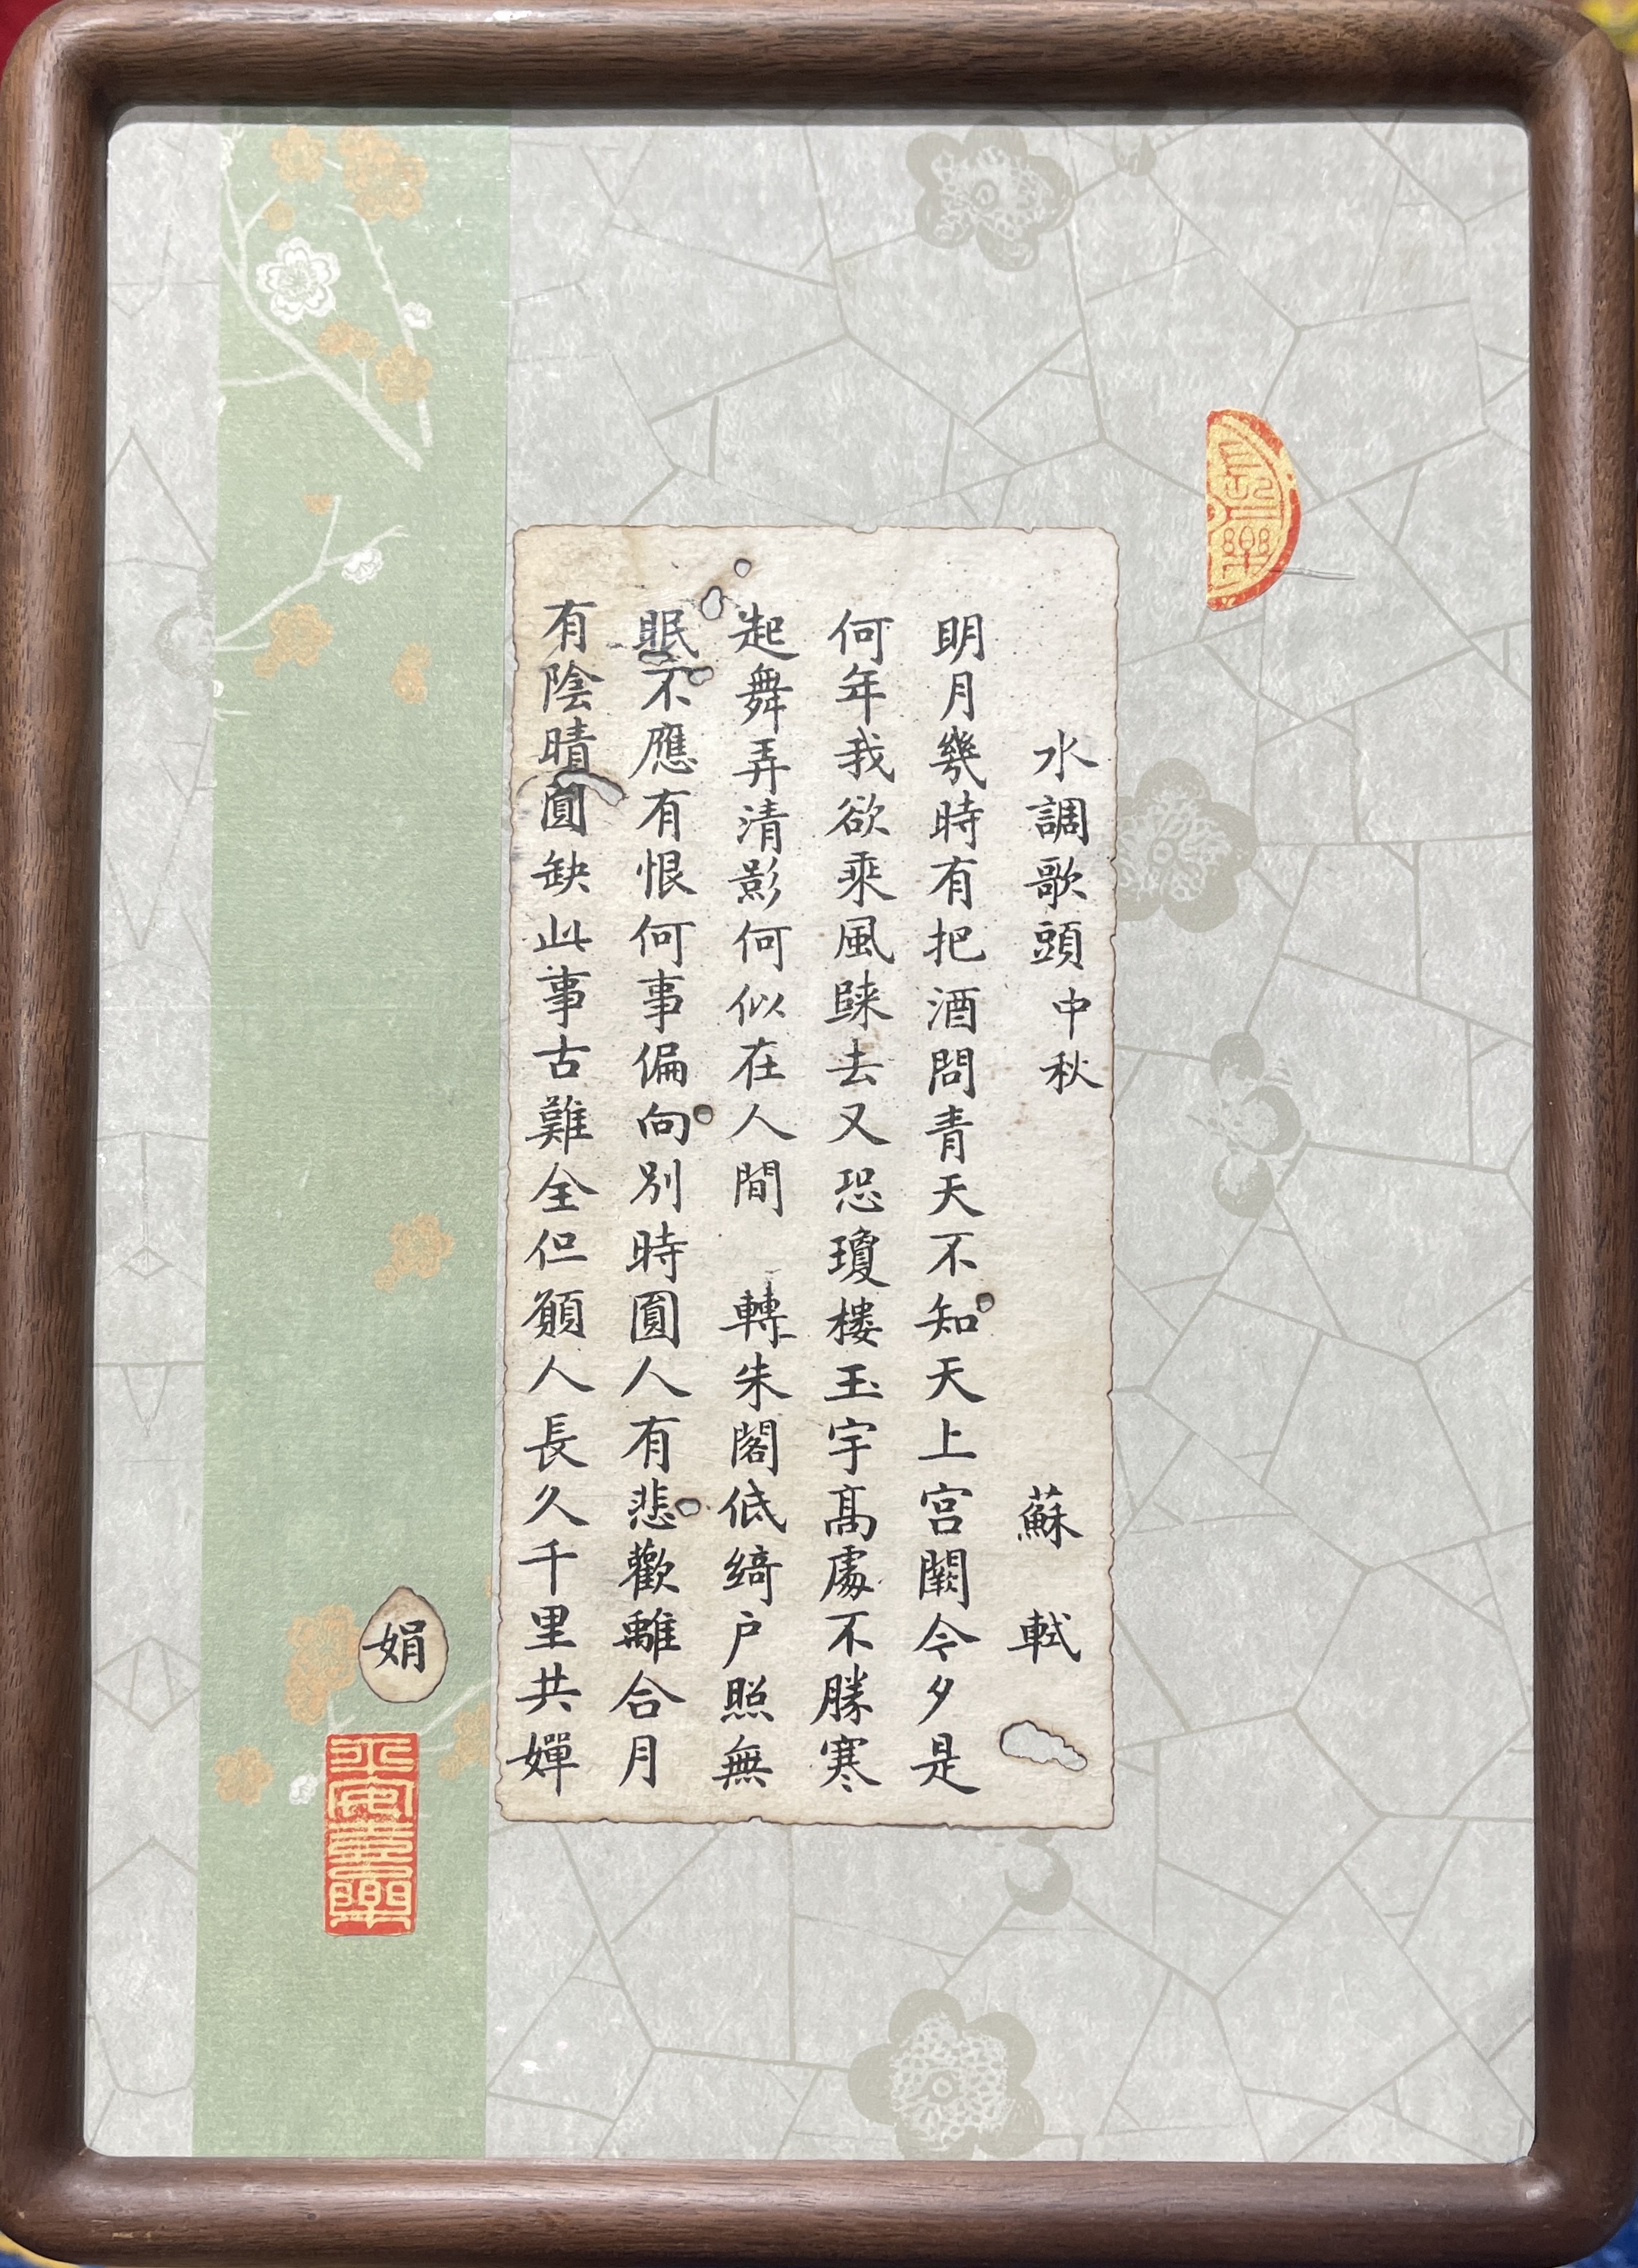 長樂
水調歌頭 中秋 蘇 軾
明月幾時有把酒問青天不知天上宮闕今夕是
何年我欲乘風歸去又恐瓊樓玉宇髙處不勝寒
起舞弄清影何似在人間 轉朱閣低綺户照無
眠不應有恨何事偏向別時圓人有悲歡離合月
有陰晴圓缺此事古難全但願人長久千里共嬋
娟
平安喜樂